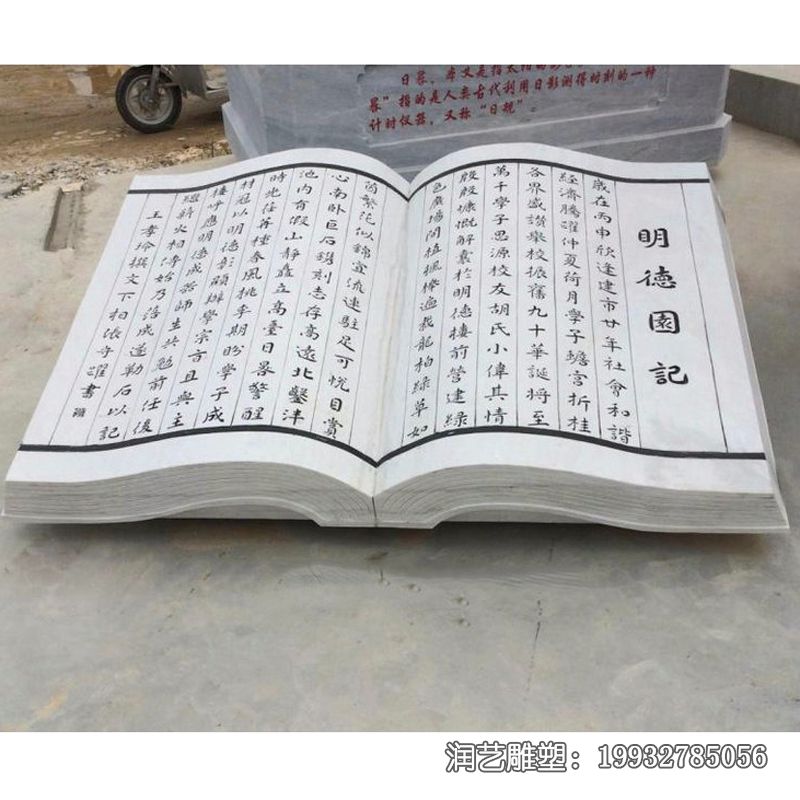 日晷，本义是指太阳的影
晷”指的是人类古代利用日影测得时刻的一种
计时仪器，又称“日规”。
明德園記
歲在丙申欣逢建市廿年社會和諧
經濟騰躍仲夏荷月學子蟾宮折桂
各界盛讚舉校振奮九十華誕將至
萬千學子思源校友胡氏小偉其情
殷殷慷慨解囊於明德樓前營建綠
色廣場間植楓櫸遍栽龍柏綠草如
茵繁花似錦宜流連駐足可悅目賞
心南卧巨石鐫刻志存高遠北鑿泮
池内有假山靜矗立高臺日晷警醒
時光荏苒種春風桃李期盼學子成
材冠以明德彰顯辦學宗旨且與主
樓呼應明德成器師生共勉前任後
繼薪火相傳始乃落成遂勒石以記
王孝玲撰文下相張守躍書
润艺雕塑：19932785056